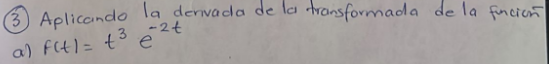 ③ Aplicando la derivada de la transformada de la función
a) f(t) = t³ e⁻²ᵗ